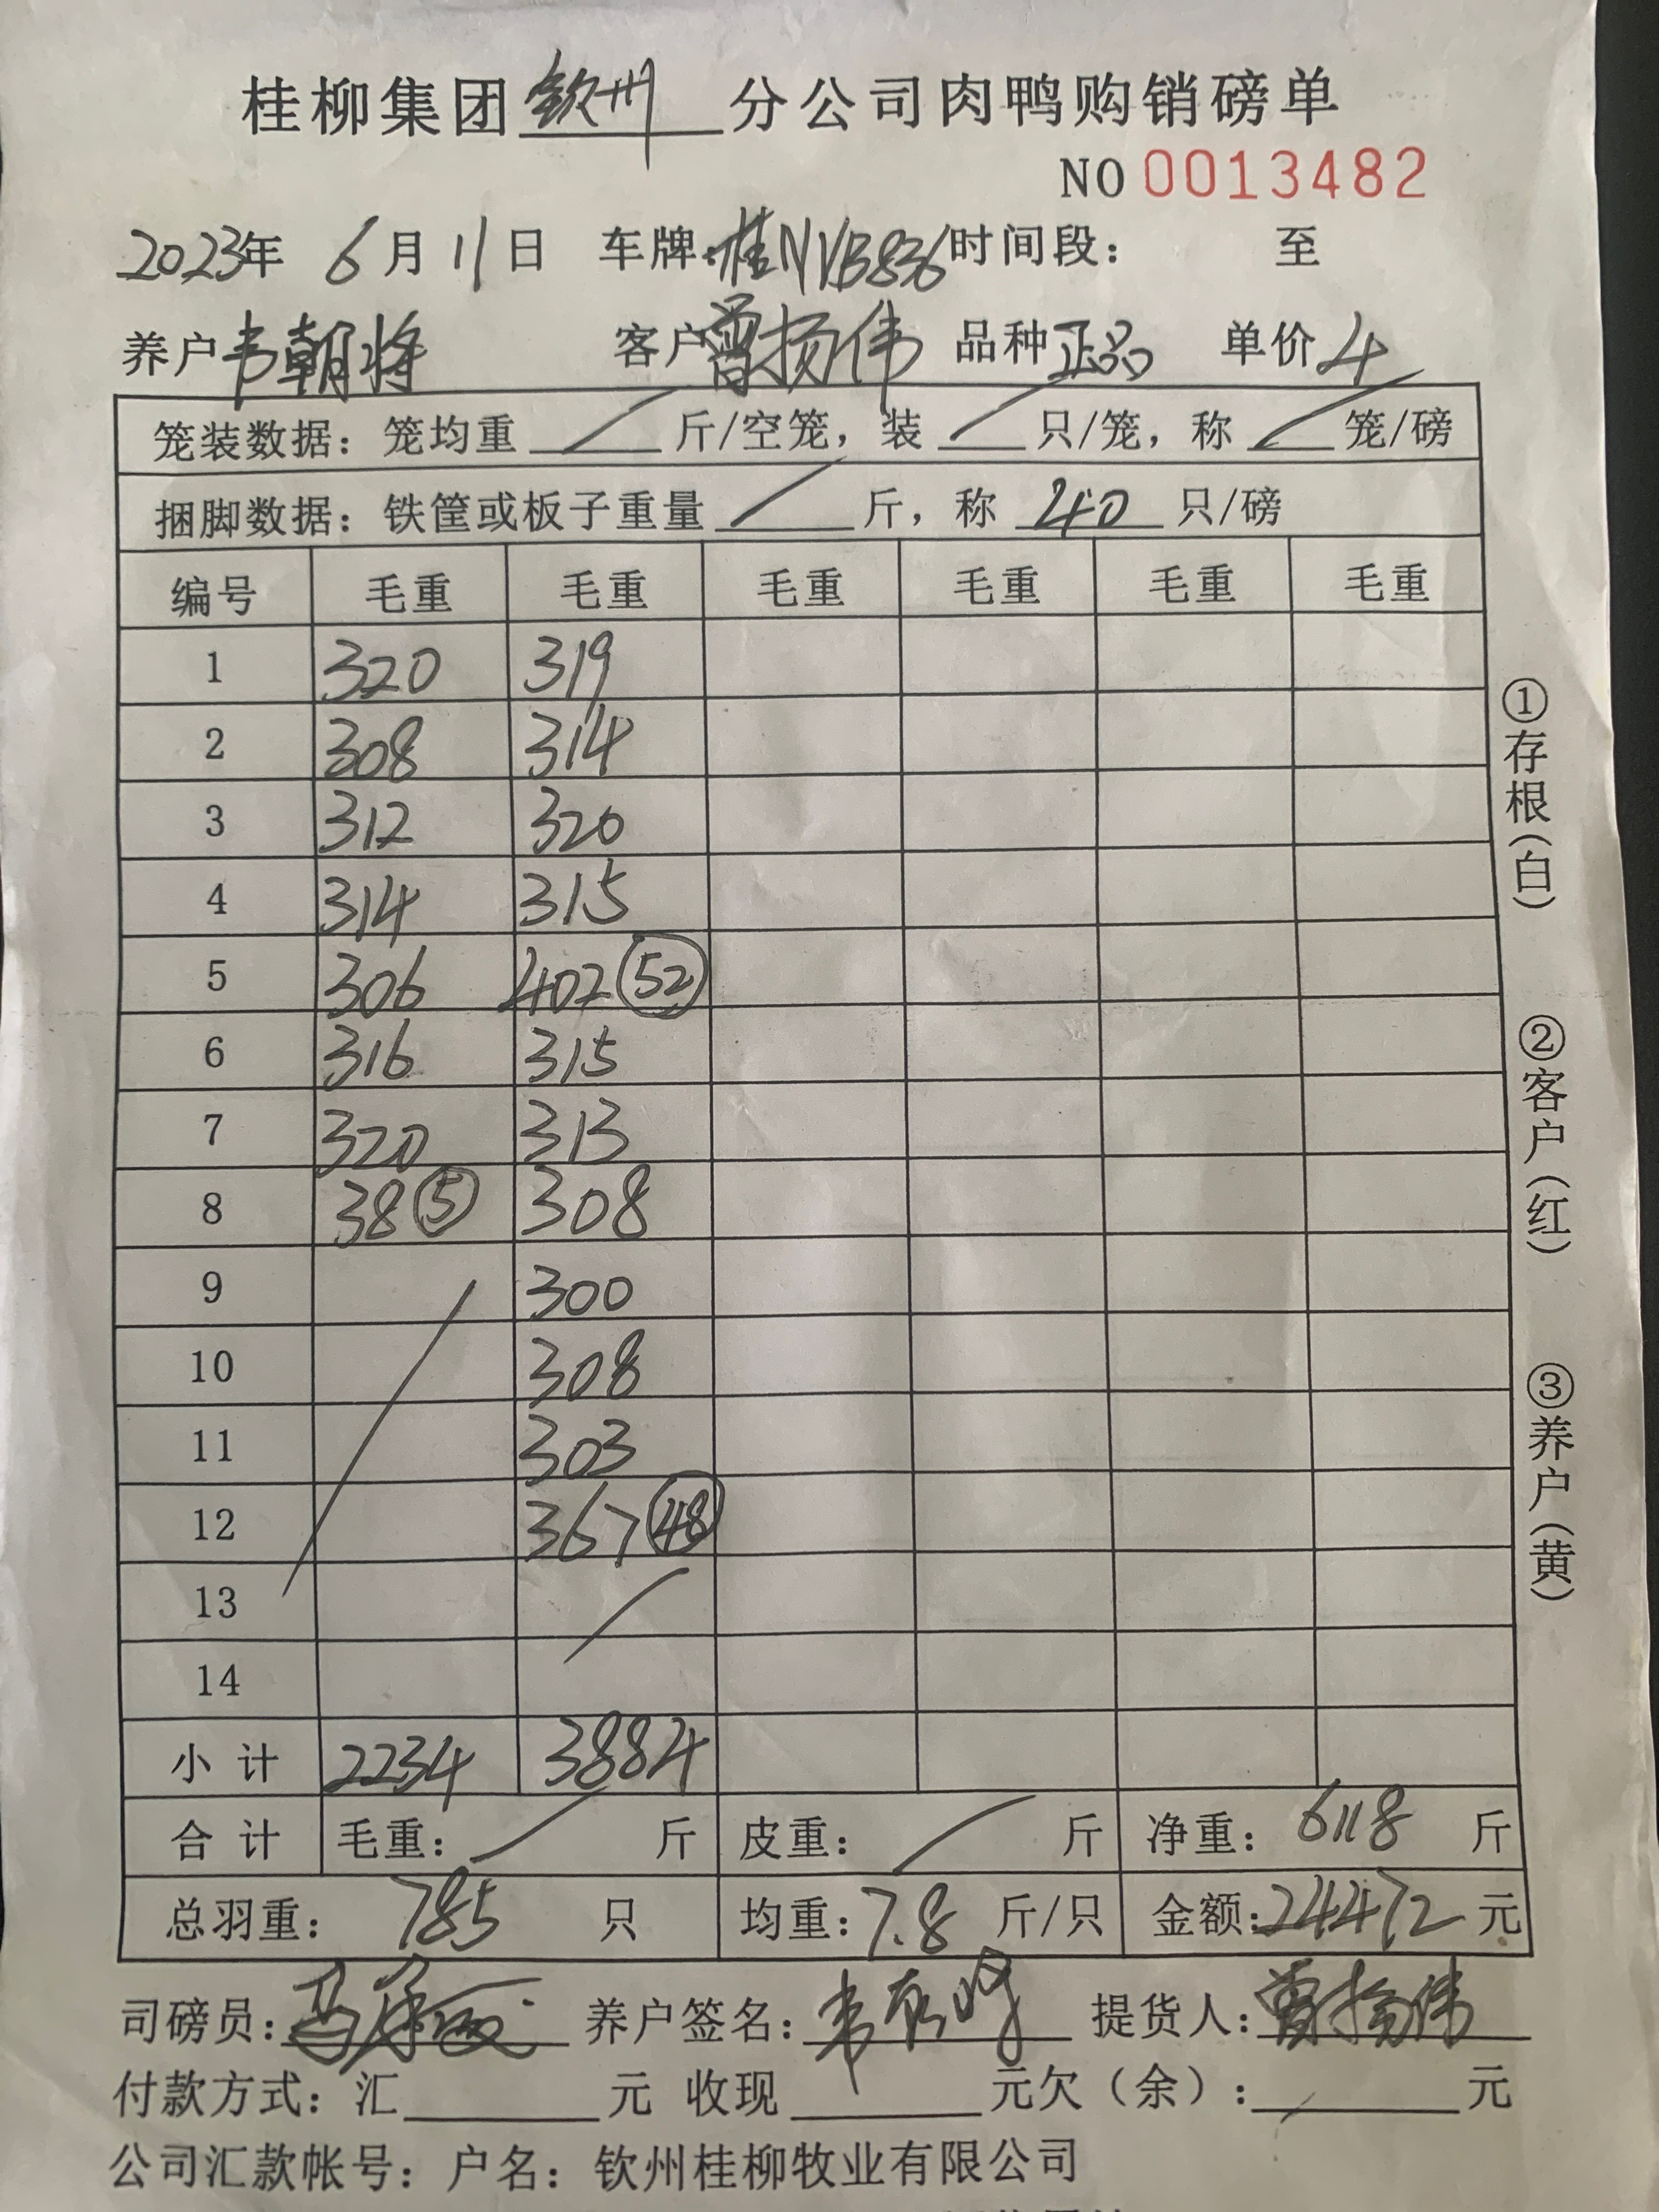 桂柳集团 钦州 分公司肉鸭购销磅单
NO 0013482
2023年 6月 11日 车牌:桂NVB836 时间段: 至
养户 韦朝将 客户 曾扬伟 品种 正品 单价 4
笼装数据: 笼均重 / 斤/空笼, 装 / 只/笼, 称 / 笼/磅
捆脚数据: 铁筐或板子重量 / 斤, 称 40 只/磅
编号 毛重 毛重 毛重 毛重 毛重 毛重
1 320 319
2 308 314
3 312 320
4 314 315
5 306 402 (52)
6 316 315
7 320 313
8 38 (5) 308
9 300
10 308
11 303
12 367 (48)
13
14
小计 2234 3884
合计 毛重: / 斤 皮重: / 斤 净重: 6118 斤
总羽重: 785 只 均重: 7.8 斤/只 金额: 24472 元
司磅员: 养户签名: 提货人: 曾扬伟
付款方式: 汇 元 收现 元欠(余): 元
公司汇款帐号: 户名: 钦州桂柳牧业有限公司
①存根(白)
②客户(红)
③养户(黄)